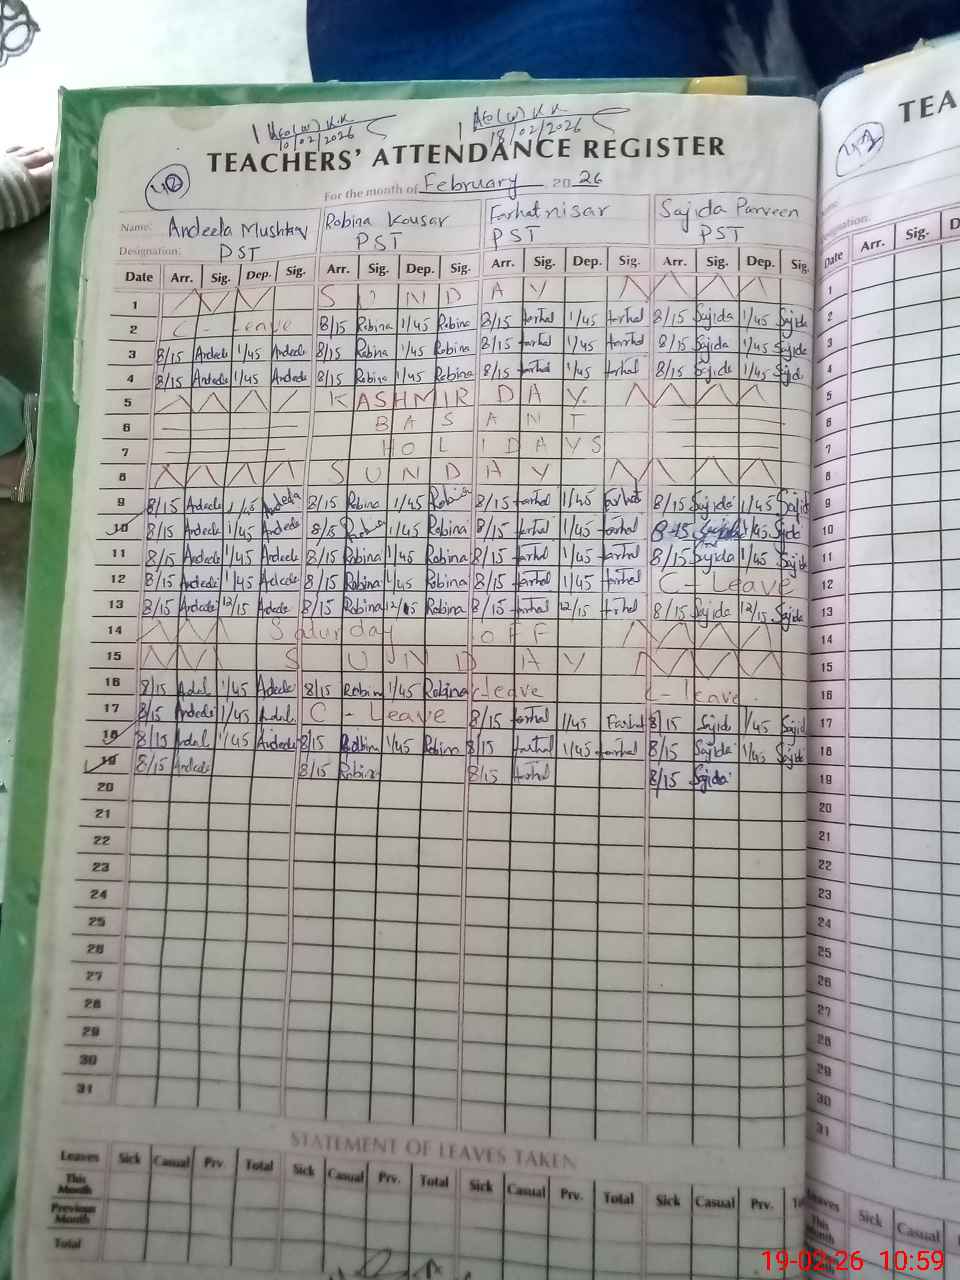 AEO(W) K.K AEO(W) K.K
10/02/2026 18/02/2026
TEACHERS' ATTENDANCE REGISTER
For the month of February 2026
Name: Andeela Mushtaq Robina Kousar Farhat nisar Sajida Parveen
Designation: PST PST PST PST
Date Arr. Sig. Dep. Sig. Arr. Sig. Dep. Sig. Arr. Sig. Dep. Sig. Arr. Sig. Dep. Sig.
1 SUNDAY
2 C - Leave 8/15 Robina 1/45 Robina 8/15 farhat 1/45 farhat 8/15 Sajida 1/45 Sajida
3 8/15 Andeela 1/45 Andeela 8/15 Robina 1/45 Robina 8/15 farhat 1/45 farhat 8/15 Sajida 1/45 Sajida
4 8/15 Andeela 1/45 Andeela 8/15 Robina 1/45 Robina 8/15 farhat 1/45 farhat 8/15 Sajida 1/45 Sajida
5 KASHMIR DAY.
6 BASANT
7 HOLIDAYS
8 SUNDAY
9 8/15 Andeela 1/45 Andeela 8/15 Robina 1/45 Robina 8/15 farhat 1/45 farhat 8/15 Sajida 1/45 Sajida
10 8/15 Andeela 1/45 Andeela 8/15 Robina 1/45 Robina 8/15 farhat 1/45 farhat 8-15 Sajida 1/45 Sajida
11 8/15 Andeela 1/45 Andeela 8/15 Robina 1/45 Robina 8/15 farhat 1/45 farhat 8/15 Sajida 1/45 Sajida
12 8/15 Andeela 1/45 Andeela 8/15 Robina 1/45 Robina 8/15 farhat 1/45 farhat C - Leave
13 8/15 Andeela 12/15 Andeela 8/15 Robina 12/15 Robina 8/15 farhat 12/15 farhat 8/15 Sajida 12/15 Sajida
14 Saturday OFF
15 SUNDAY
16 8/15 Andeela 1/45 Andeela 8/15 Robina 1/45 Robina C-leave C - leave.
17 8/15 Andeela 1/45 Andeela C - Leave 8/15 farhat 1/45 Farhat 8/15 Sajida 1/45 Sajida
18 8/15 Andeela 1/45 Andeela 8/15 Robina 1/45 Robina 8/15 farhat 1/45 farhat 8/15 Sajida 1/45 Sajida
19 8/15 Andeela 8/15 Robina 8/15 farhat 8/15 Sajida
20
21
22
23
24
25
26
27
28
29
30
31
STATEMENT OF LEAVES TAKEN
Leaves Sick Casual Prv. Total Sick Casual Prv. Total Sick Casual Prv. Total Sick Casual Prv.
This Month
Previous Month
Total
TEA
Designation:
Date Arr. Sig.
1
2
3
4
5
6
7
8
9
10
11
12
13
14
15
16
17
18
19
20
21
22
23
24
25
26
27
28
29
30
31
Leaves Sick Casual
This Month
19-02-26 10:59